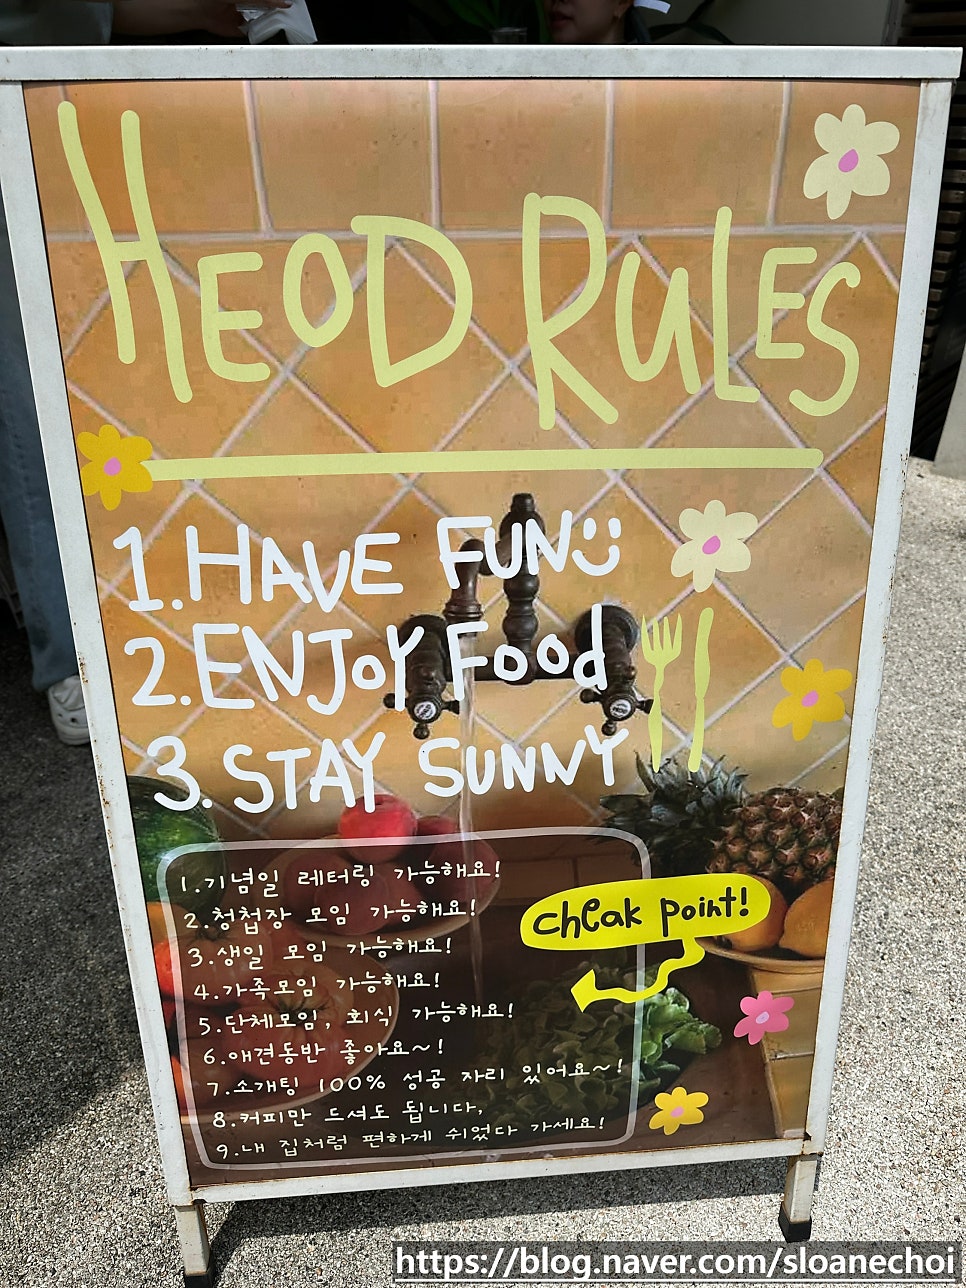 HEOD RULES
1. HAVE FUN
2. ENJOY Food
3. STAY SUNNY
1.기념일 레터링 가능해요!
2.청첩장 모임 가능해요!
3.생일 모임 가능해요!
4.가족모임 가능해요!
5.단체모임, 회식 가능해요!
6.애견동반 좋아요~!
7.소개팅 100% 성공 자리 있어요~!
8.커피만 드셔도 됩니다,
9.내 집처럼 편하게 쉬었다 가세요!
cheak point!
https://blog.naver.com/sloanechoi